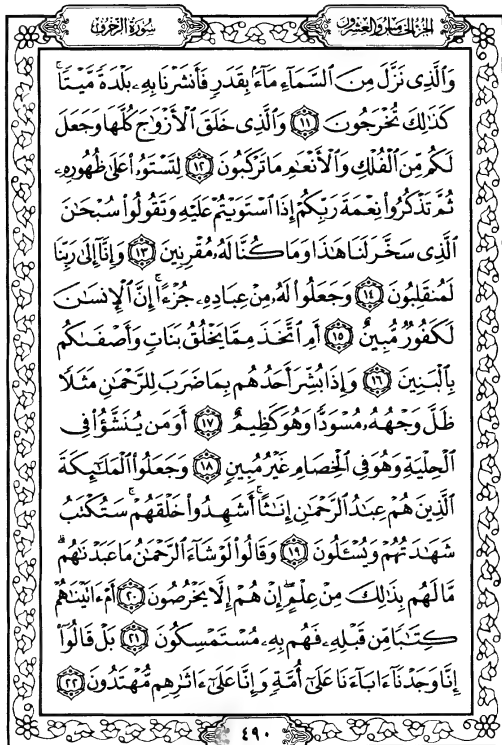 سُورَةُ الزُّخْرُفِ
الجُزْءُ الخَامِسُ وَالعِشْرُونَ
وَالَّذِى نَزَّلَ مِنَ السَّمَآءِ مَآءَۢ بِقَدَرٍ فَأَنشَرْنَا بِهِۦ بَلْدَةً مَّيْتًاۚ
كَذَٰلِكَ تُخْرَجُونَ ١١ وَالَّذِى خَلَقَ الْأَزْوَٰجَ كُلَّهَا وَجَعَلَ
لَكُم مِّنَ الْفُلْكِ وَالْأَنْعَٰمِ مَا تَرْكَبُونَ ١٢ لِتَسْتَوُۥا۟ عَلَىٰ ظُهُورِهِۦ
ثُمَّ تَذْكُرُوا۟ نِعْمَةَ رَبِّكُمْ إِذَا اسْتَوَيْتُمْ عَلَيْهِ وَتَقُولُوا۟ سُبْحَٰنَ
الَّذِى سَخَّرَ لَنَا هَٰذَا وَمَا كُنَّا لَهُۥ مُقْرِنِينَ ١٣ وَإِنَّآ إِلَىٰ رَبِّنَا
لَمُنقَلِبُونَ ١٤ وَجَعَلُوا۟ لَهُۥ مِنْ عِبَادِهِۦ جُزْءًاۚ إِنَّ الْإِنسَٰنَ
لَكَفُورٌ مُّبِينٌ ١٥ أَمِ اتَّخَذَ مِمَّا يَخْلُقُ بَنَاتٍ وَأَصْفَىٰكُم
بِالْبَنِينَ ١٦ وَإِذَا بُشِّرَ أَحَدُهُم بِمَا ضَرَبَ لِلرَّحْمَٰنِ مَثَلًا
ظَلَّ وَجْهُهُۥ مُسْوَدًّا وَهُوَ كَظِيمٌ ١٧ أَوَمَن يُنَشَّؤُا۟ فِى
الْحِلْيَةِ وَهُوَ فِى الْخِصَامِ غَيْرُ مُبِينٍ ١٨ وَجَعَلُوا۟ الْمَلَٰٓئِكَةَ
الَّذِينَ هُمْ عِبَٰدُ الرَّحْمَٰنِ إِنَٰثًاۚ أَشَهِدُوا۟ خَلْقَهُمْۚ سَتُكْتَبُ
شَهَٰدَتُهُمْ وَيُسْـَٔلُونَ ١٩ وَقَالُوا۟ لَوْ شَآءَ الرَّحْمَٰنُ مَا عَبَدْنَٰهُمۗ
مَّا لَهُم بِذَٰلِكَ مِنْ عِلْمٍۖ إِنْ هُمْ إِلَّا يَخْرُصُونَ ٢٠ أَمْ ءَاتَيْنَٰهُمْ
كِتَٰبًا مِّن قَبْلِهِۦ فَهُم بِهِۦ مُسْتَمْسِكُونَ ٢١ بَلْ قَالُوٓا۟
إِنَّا وَجَدْنَآ ءَابَآءَنَا عَلَىٰٓ أُمَّةٍ وَإِنَّا عَلَىٰٓ ءَاثَٰرِهِم مُّهْتَدُونَ ٢٢
٤٩٠